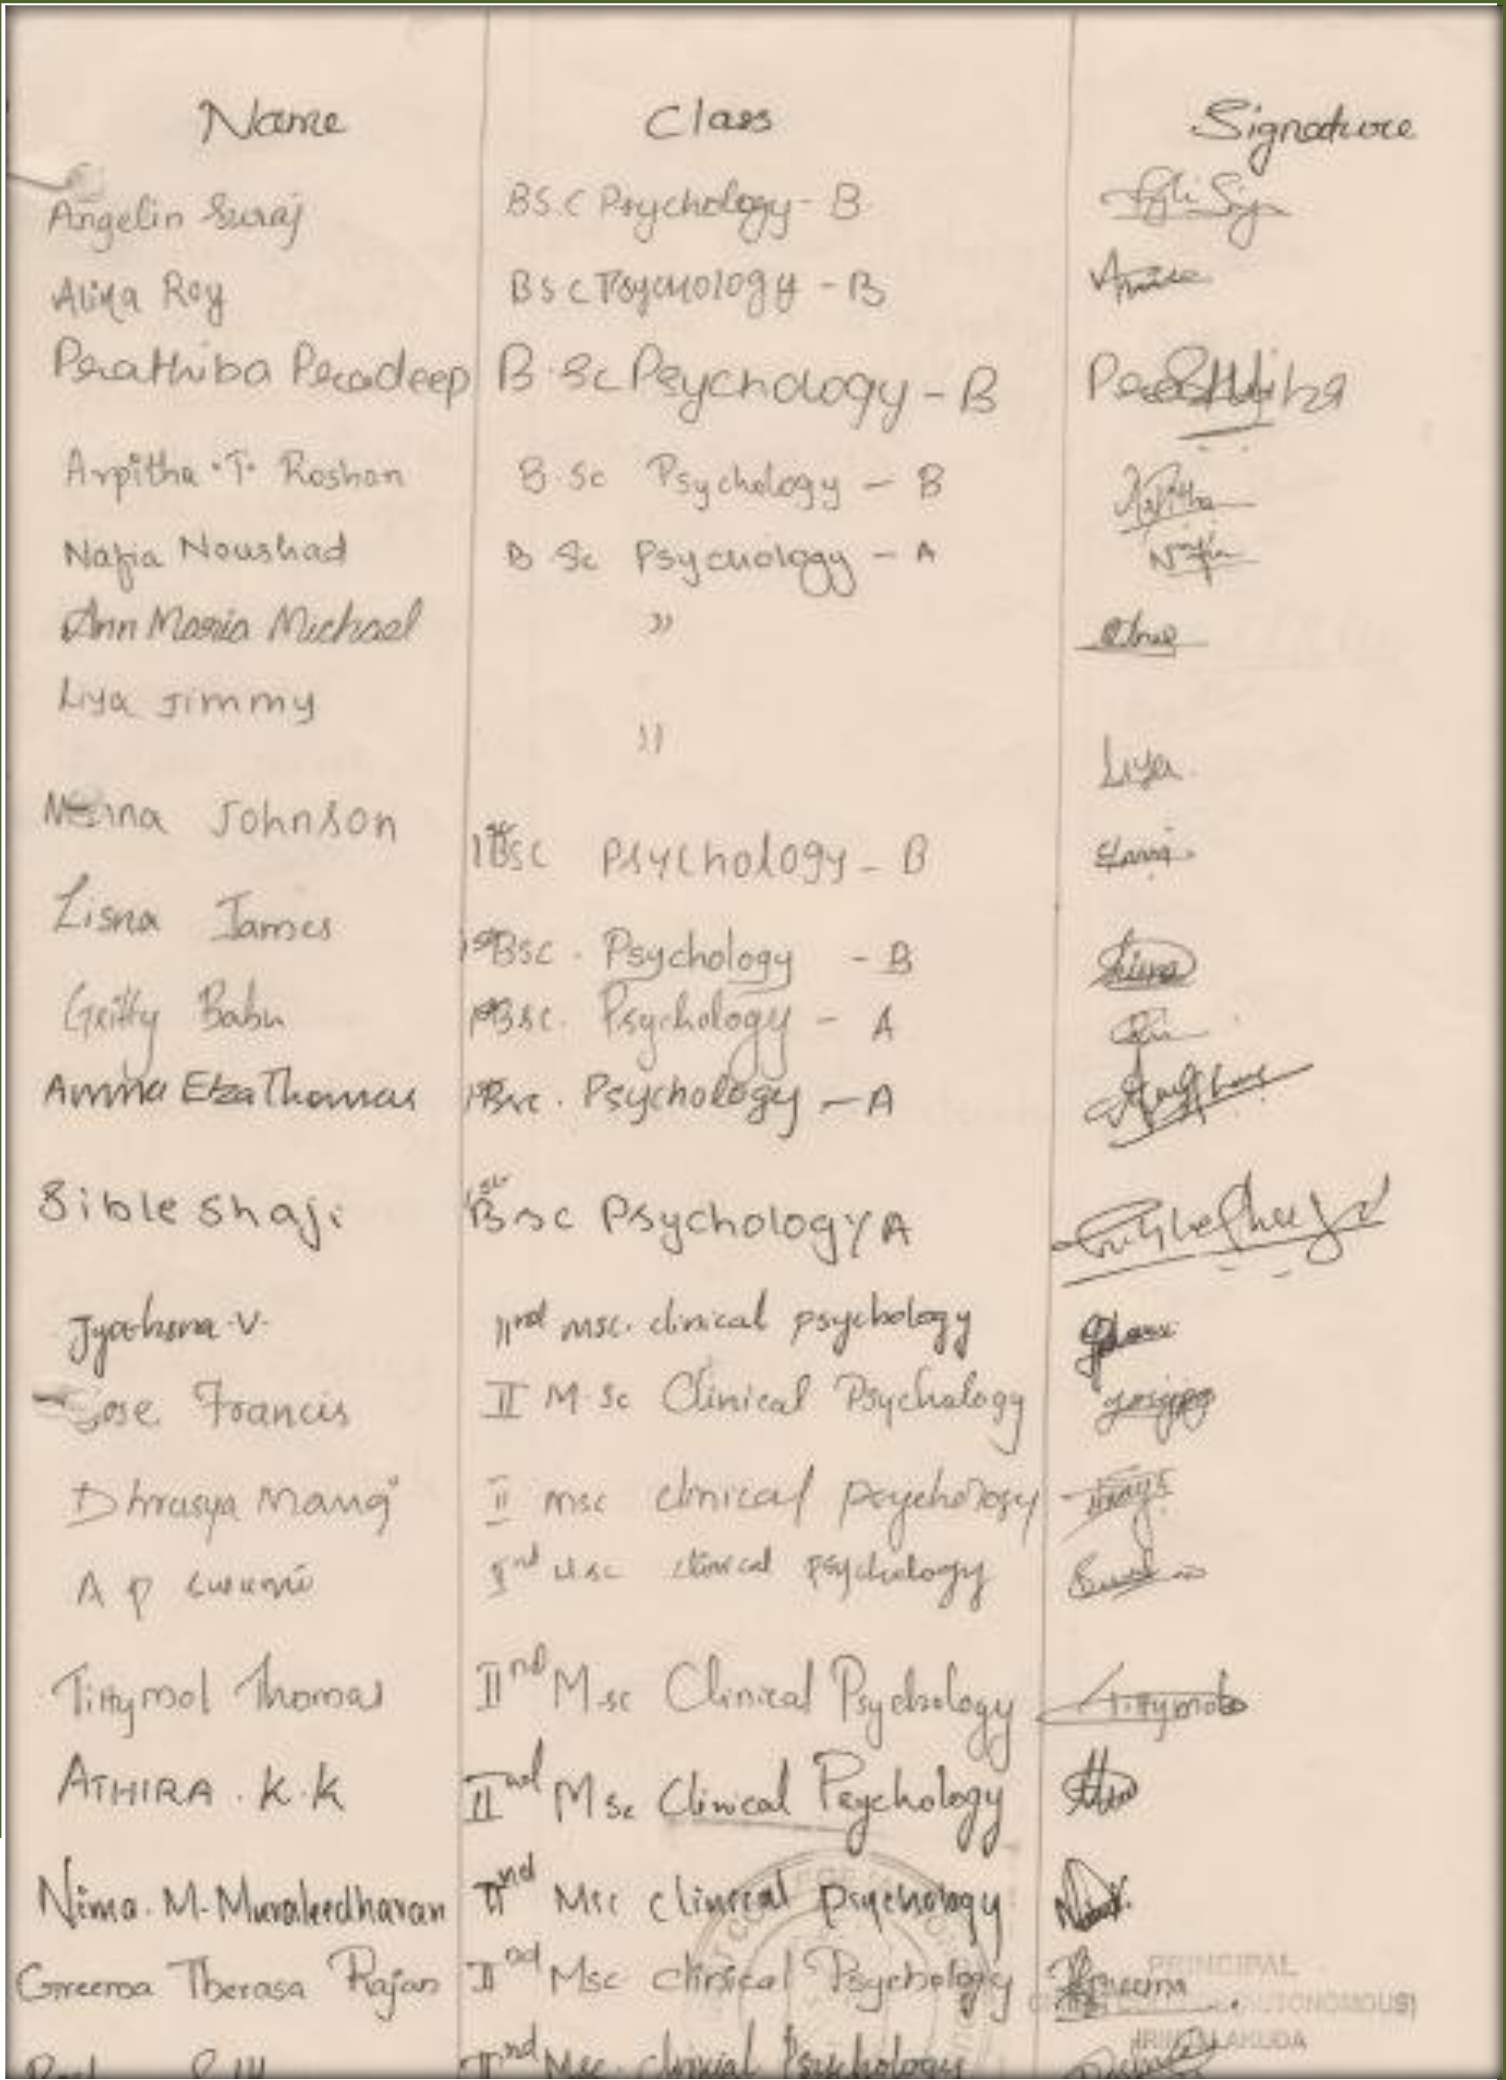 Name Class Signature
Angelin Suraj BS.C Psychology - B
Alina Roy BSC Psychology - B
Prathiba Pradeep B.Sc Psychology - B Prathiba
Arpitha .T. Roshan B.Sc Psychology - B Arpitha
Nafia Noushad B Sc Psychology - A Nafia
Ann Maria Michael "
Liya Jimmy
" Liya
Johnson
1st BSC Psychology - B
Lisna James
1st BSC. Psychology - B
Gritty Babu 1st BSC. Psychology - A
Anna Elza Thomas 1st Bsc. Psychology - A
Bible Shaji 1st Bsc Psychology A
Jyothsna V. IInd msc. clinical psychology
Jose Francis II M.Sc Clinical Psychology
Dhrusya Manoj II msc clinical psychology
A P IInd Msc clinical psychology
Tittymol Thomas IInd M.sc Clinical Psychology Tittymol
ATHIRA . K . K IInd M Sc Clinical Psychology
Nima. M. Muraleedharan IInd Msc clinical psychology
Greema Therasa Rajan IInd Msc clinical Psychology Greema
PRINCIPAL
(AUTONOMOUS)
IRINJALAKUDA
IInd Msc. clinical Psychology